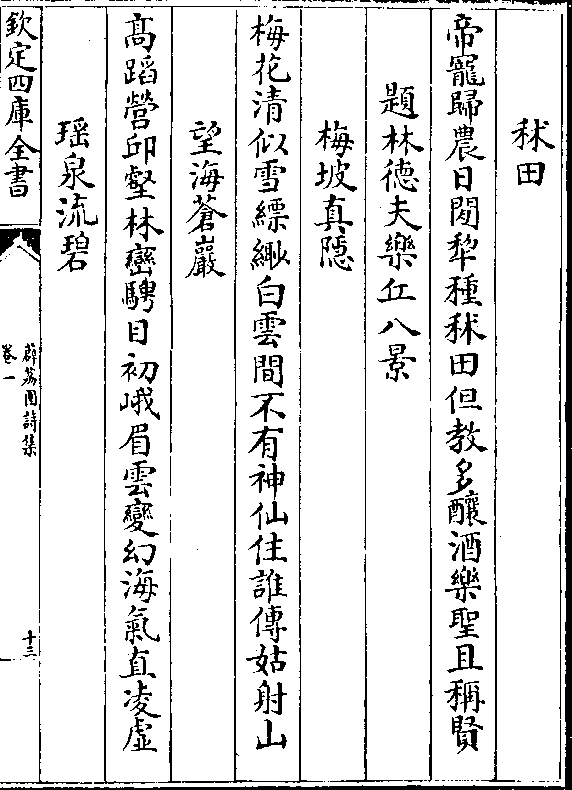 秫田
帝寵歸農日閒犂種秫田但教多釀酒樂聖且稱賢
題林徳夫樂丘八景
梅坡真隠
梅花清似雪縹緲白雲間不有神仙住誰傳姑射山
望海蒼巖
髙蹈營邱壑林巒騁目初峨眉雲變幻海氣直凌虚
瑶泉流碧
欽定四庫全書
薜荔園詩集
卷一
十三